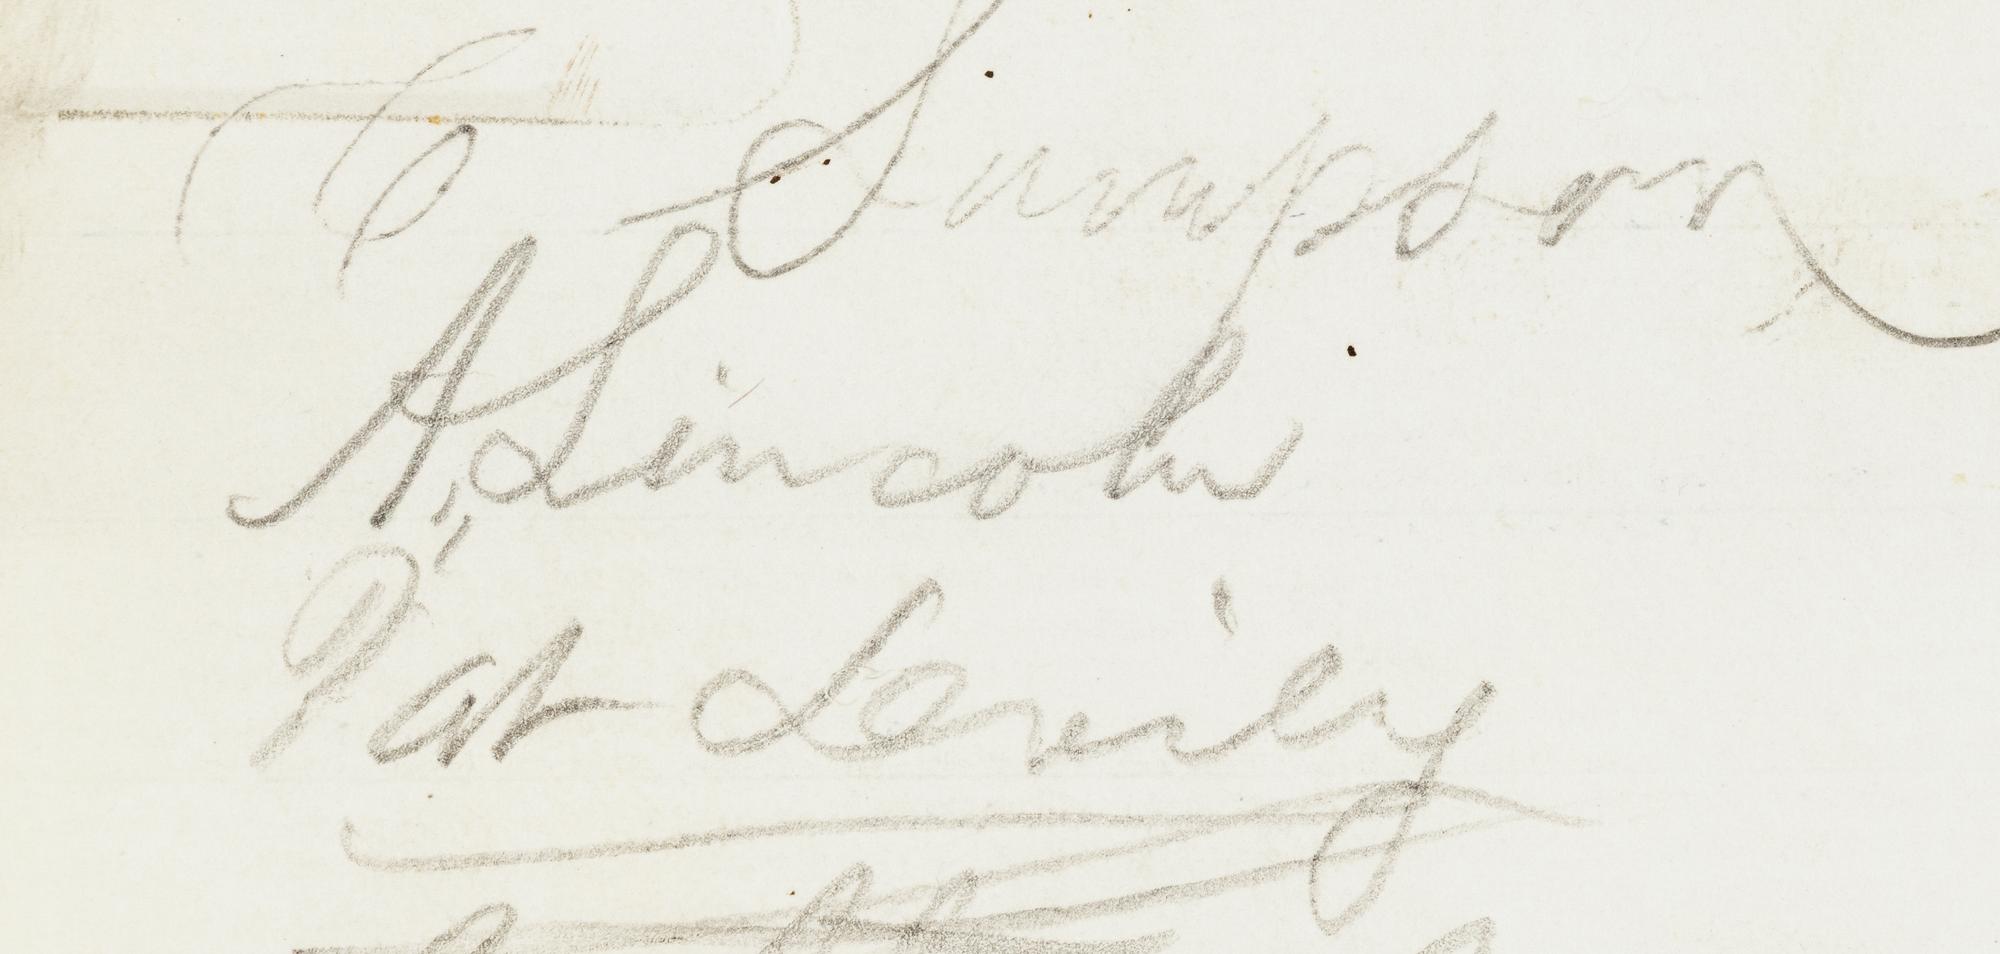 C Simpson
A. Lincoln
Pat Levily